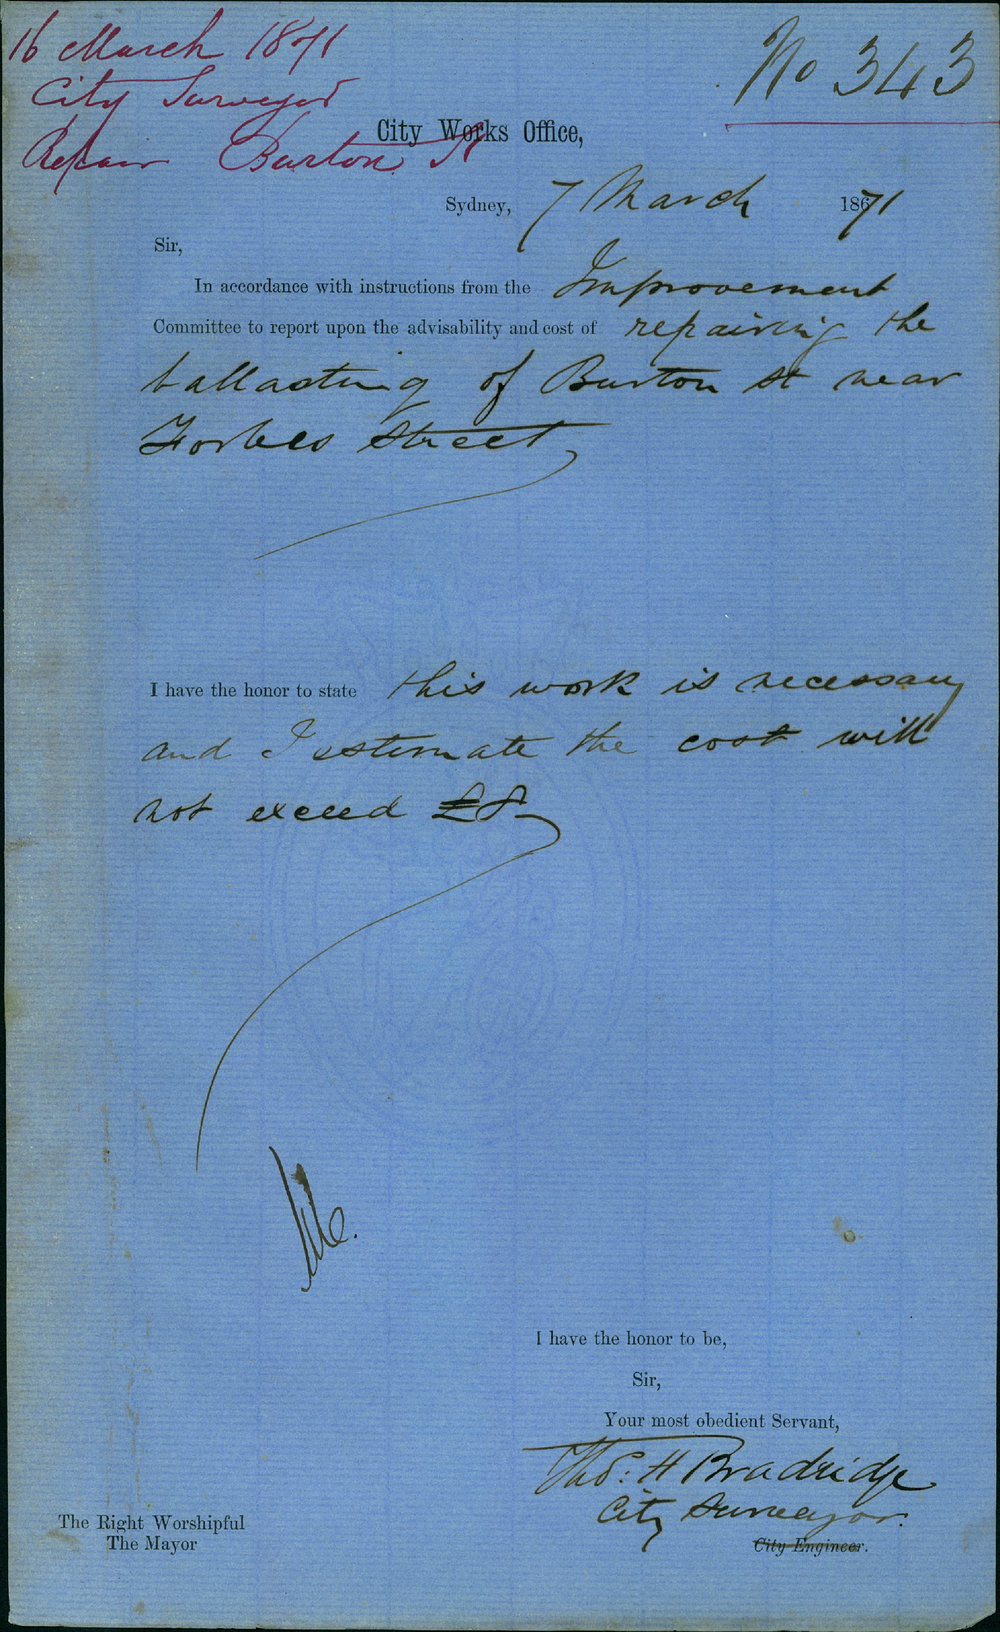 16 March 1871
City Surveyor
Repair Burton St
No 343
City Works Office,
Sydney, 7 March 1871
Sir,
In accordance with instructions from the Improvement
Committee to report upon the advisability and cost of repairing the
ballasting of Burton St near
Forbes Street
I have the honor to state this work is necessary
and I estimate the cost will
not exceed £8
I have the honor to be,
Sir,
Your most obedient Servant,
Thos. H Bradridge
City Surveyor.
City Engineer.
The Right Worshipful
The Mayor